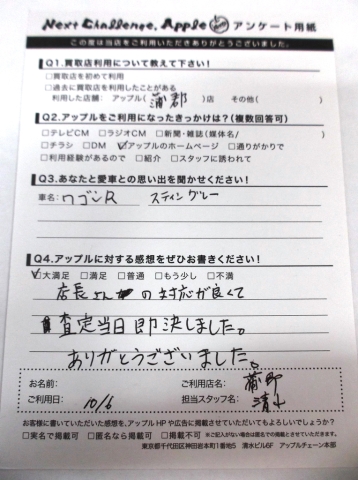 Next Challenge, Apple アンケート用紙
この度は当店をご利用いただきありがとうございました。
Q1.買取店利用について教えて下さい!
□買取店を初めて利用
□過去に買取店を利用したことがある
利用した店舗: アップル( 蒲郡 )店 その他( )
Q2.アップルをご利用になったきっかけは?(複数回答可)
□テレビCM □ラジオCM □新聞・雑誌(媒体名/ )
□チラシ □DM ☑アップルのホームページ □通りがかりで
□利用経験があるので □紹介 □スタッフに誘われて
Q3.あなたと愛車との思い出を聞かせください!
車名: ワゴンR スティングレー
Q4.アップルに対する感想をぜひお書きください!
☑大満足 □満足 □普通 □もう少し □不満
店長さんの対応が良くて
査定当日即決しました。
ありがとうございました。
お名前: ご利用店名: 蒲郡
ご利用日: 10/6 担当スタッフ名: 清水
お客様に書いていただいた感想を、アップルHPや広告に掲載させていただいてもよろしいでしょうか?
□実名で掲載可 □匿名なら掲載可 □掲載不可 ※ご記入がない場合は匿名での掲載とさせていただきます。
東京都千代田区神田岩本町1番地5 清水ビル6F アップルチェーン本部